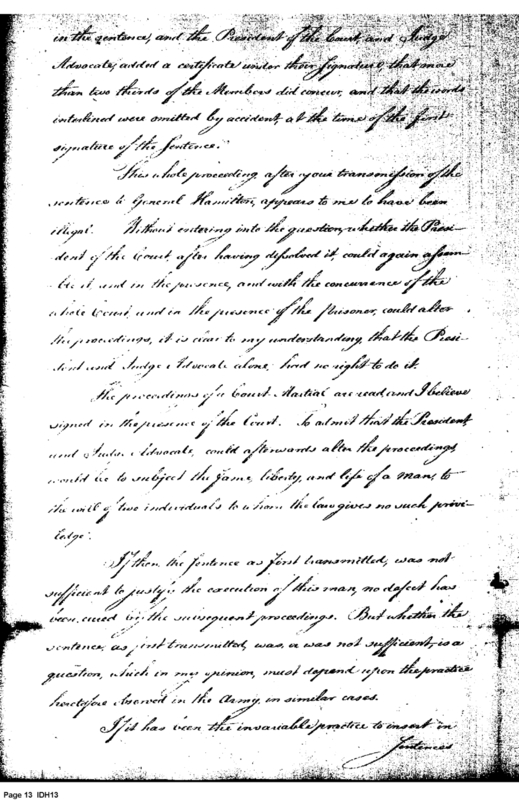 in the sentence, and the President of the Court, and Judge
Advocate, added a certificate under their signature, that more
than two thirds of the Members did concur, and that the words
interlined were omitted by accident, at the time of the first
signature of the Sentence.
This whole proceeding, after your transmission of the
sentence to General Hamilton, appears to me to have been
illegal. Without entering into the question, whether the Presi-
dent of the Court, after having dissolved it, could again assem-
ble it, and in the presence, and with the concurrence of the
whole Court, and in the presence of the Prisoner, could alter
the proceedings, it is clear to my understanding, that the Presi-
dent and Judge Advocate alone, had no right to do it.
The proceedings of a Court Martial are read and I believe
signed in the presence of the Court. To admit that the President,
and Judge Advocate, could afterwards alter the proceedings,
would be to subject the fame, liberty, and life of a man, to
the will of two individuals to whom the law gives no such privi-
ledge.
If then the Sentence as first transmitted, was not
sufficient to justify the execution of this man, no defect has
been cured by the subsequent proceedings. But whether the
sentence, as first transmitted, was, or was not sufficient, is a
question, which in my opinion, must depend upon the practice
heretofore observed in the Army, in similar cases.
If it has been the invariable practice to insert in
Sentences
Page 13 IDH13